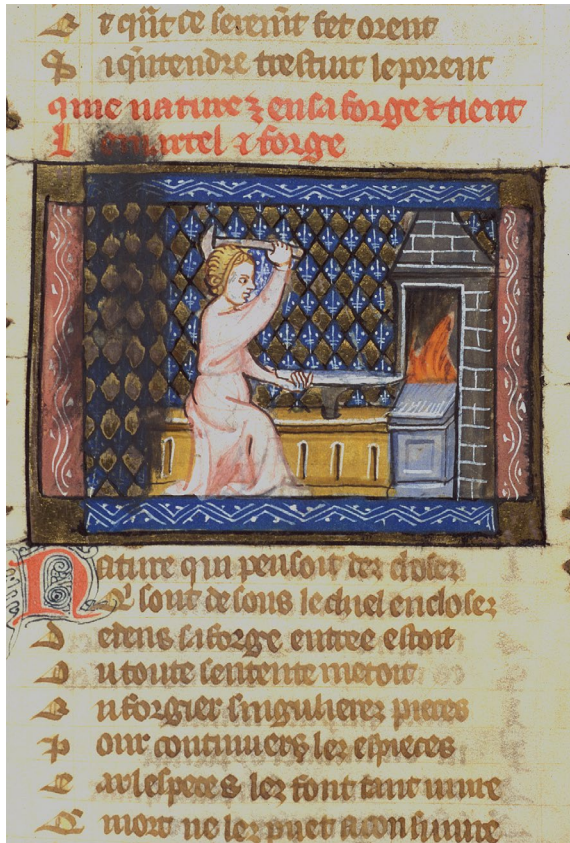 E t qñt ce seremt fet orent
S i qñtendre trestuit le porent
qme nature ⁊ en sa forge ⁊ tient
L e martel ⁊ forge
Nature qui pensoit dez closez
Qⁱ sont desous le ciel enclosez
D edens sa forge entree estoit
O u toute sentente metoit
E n forgier singulierez pieces
P our continuer lez espieces
C ar lespeces lez font tant uiure
mort ne lez puet aconsuiure